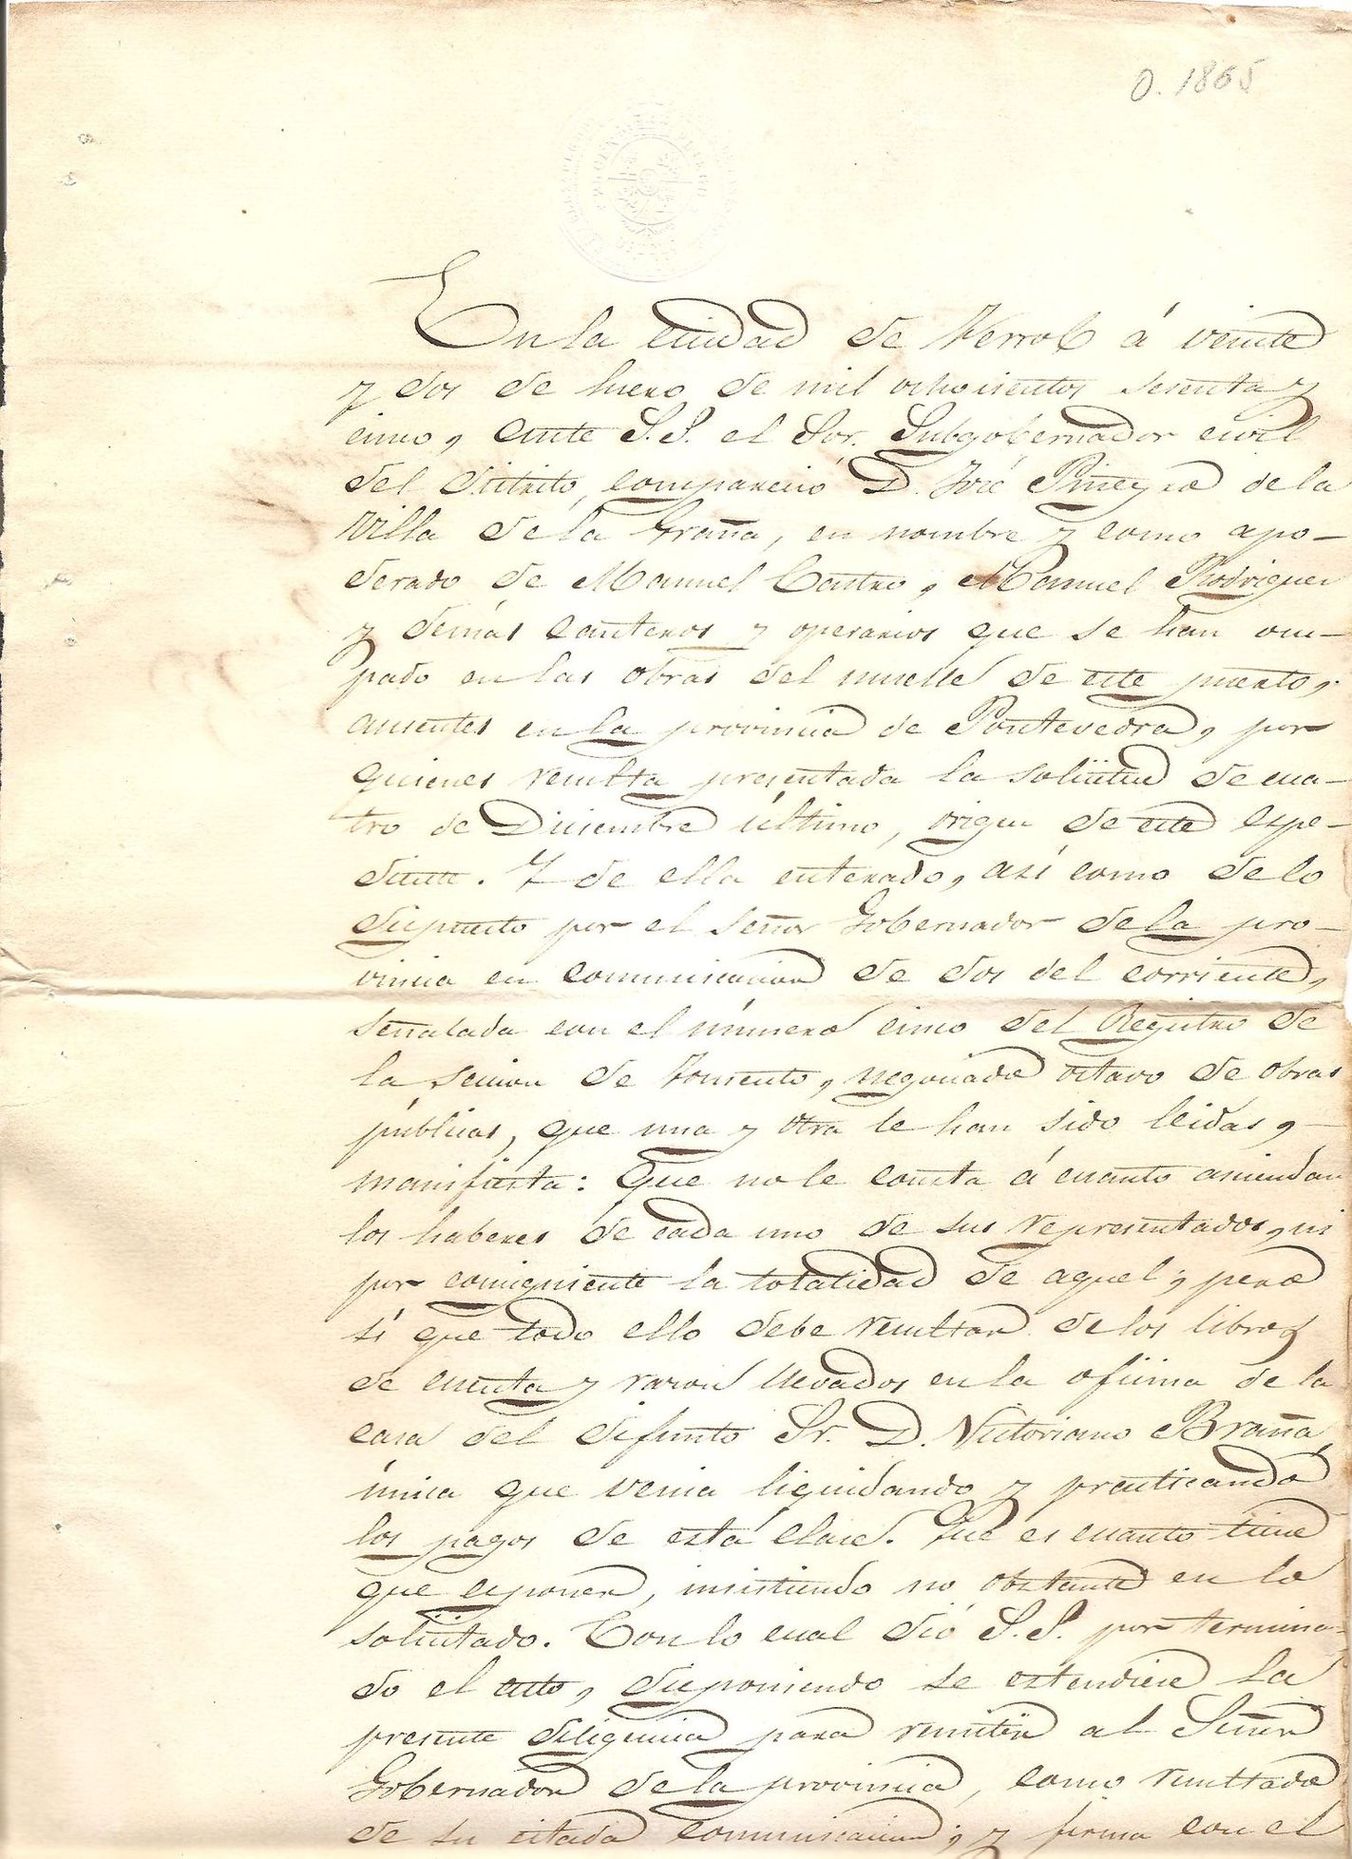 O. 1865
En la ciudad de Ferrol á veinte
y dos de Enero de mil ochocientos sesenta y
cinco, ante S.S. el Sor. Subgobernador civil
del distrito, compareció D. José Piñeyro de la
Villa de la Graña, en nombre y como apo-
derado de Manuel Castro, Manuel Rodriguez
y demás canteros y operarios que se han ocu-
pado en las obras del muelle de este puerto,
ausentes en la provincia de Pontevedra, por
quienes resulta presentada la solicitud de cua-
tro de Diciembre último, origen de este espe-
diente. Y de ella enterado, así como de lo
dispuesto por el Señor Gobernador de la pro-
vincia en comunicacion de dos del corriente,
señalada con el número cinco del Registro de
la Seccion de Fomento, negociado octavo de obras
públicas, que una y otra le han sido leidas,
manifiesta: Que no le consta á cuanto asciendan
los haberes de cada uno de sus representados, ni
por consiguiente la totalidad de aquel; pero
sí que todo ello debe resultar de los libros
de cuenta y razon llevados en la oficina de la
casa del difunto Sr. D. Victoriano Braña,
única que venia liquidando y practicando
los pagos de esta clase. Que es cuanto tiene
que esponer, insistiendo no obstante en lo
solicitado. Con lo cual dió S.S. por termina-
do el acto, disponiendo se estendiese la
presente diligencia para remitir al Señor
Gobernador de la provincia, como resultado
de su citada comunicacion; y firma con el